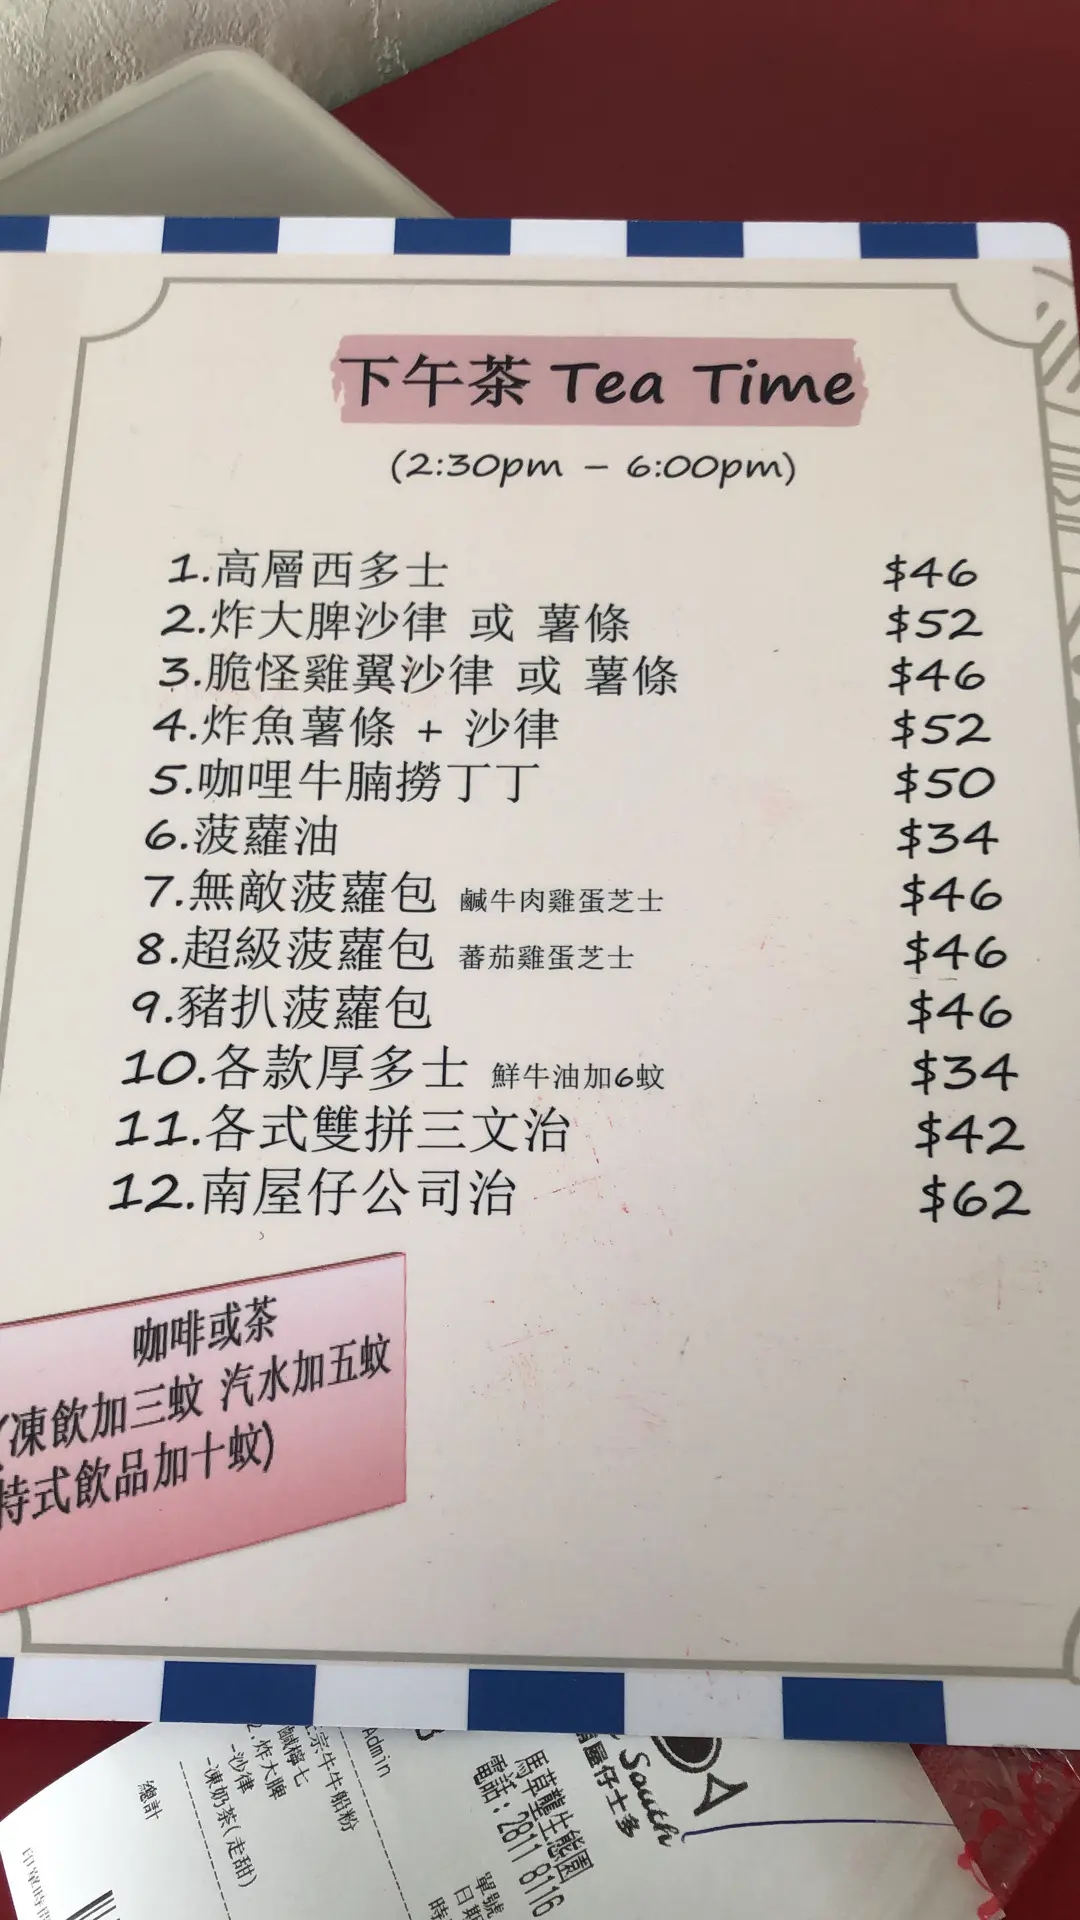 下午茶 Tea Time
(2:30pm – 6:00pm)
1.高層西多士 $46
2.炸大脾沙律 或 薯條 $52
3.脆怪雞翼沙律 或 薯條 $46
4.炸魚薯條 + 沙律 $52
5.咖哩牛腩撈丁丁 $50
6.菠蘿油 $34
7.無敵菠蘿包 鹹牛肉雞蛋芝士 $46
8.超級菠蘿包 蕃茄雞蛋芝士 $46
9.豬扒菠蘿包 $46
10.各款厚多士 鮮牛油加6蚊 $34
11.各式雙拼三文治 $42
12.南屋仔公司治 $62
咖啡或茶
凍飲加三蚊 汽水加五蚊
特式飲品加十蚊)
South
屋仔士多
馬草壟生態園
電話:2811 8116
單號
日期
Admin
牛牛船粉
鹹檸七
炸大脾
-沙律
-凍奶茶(走甜)
總計